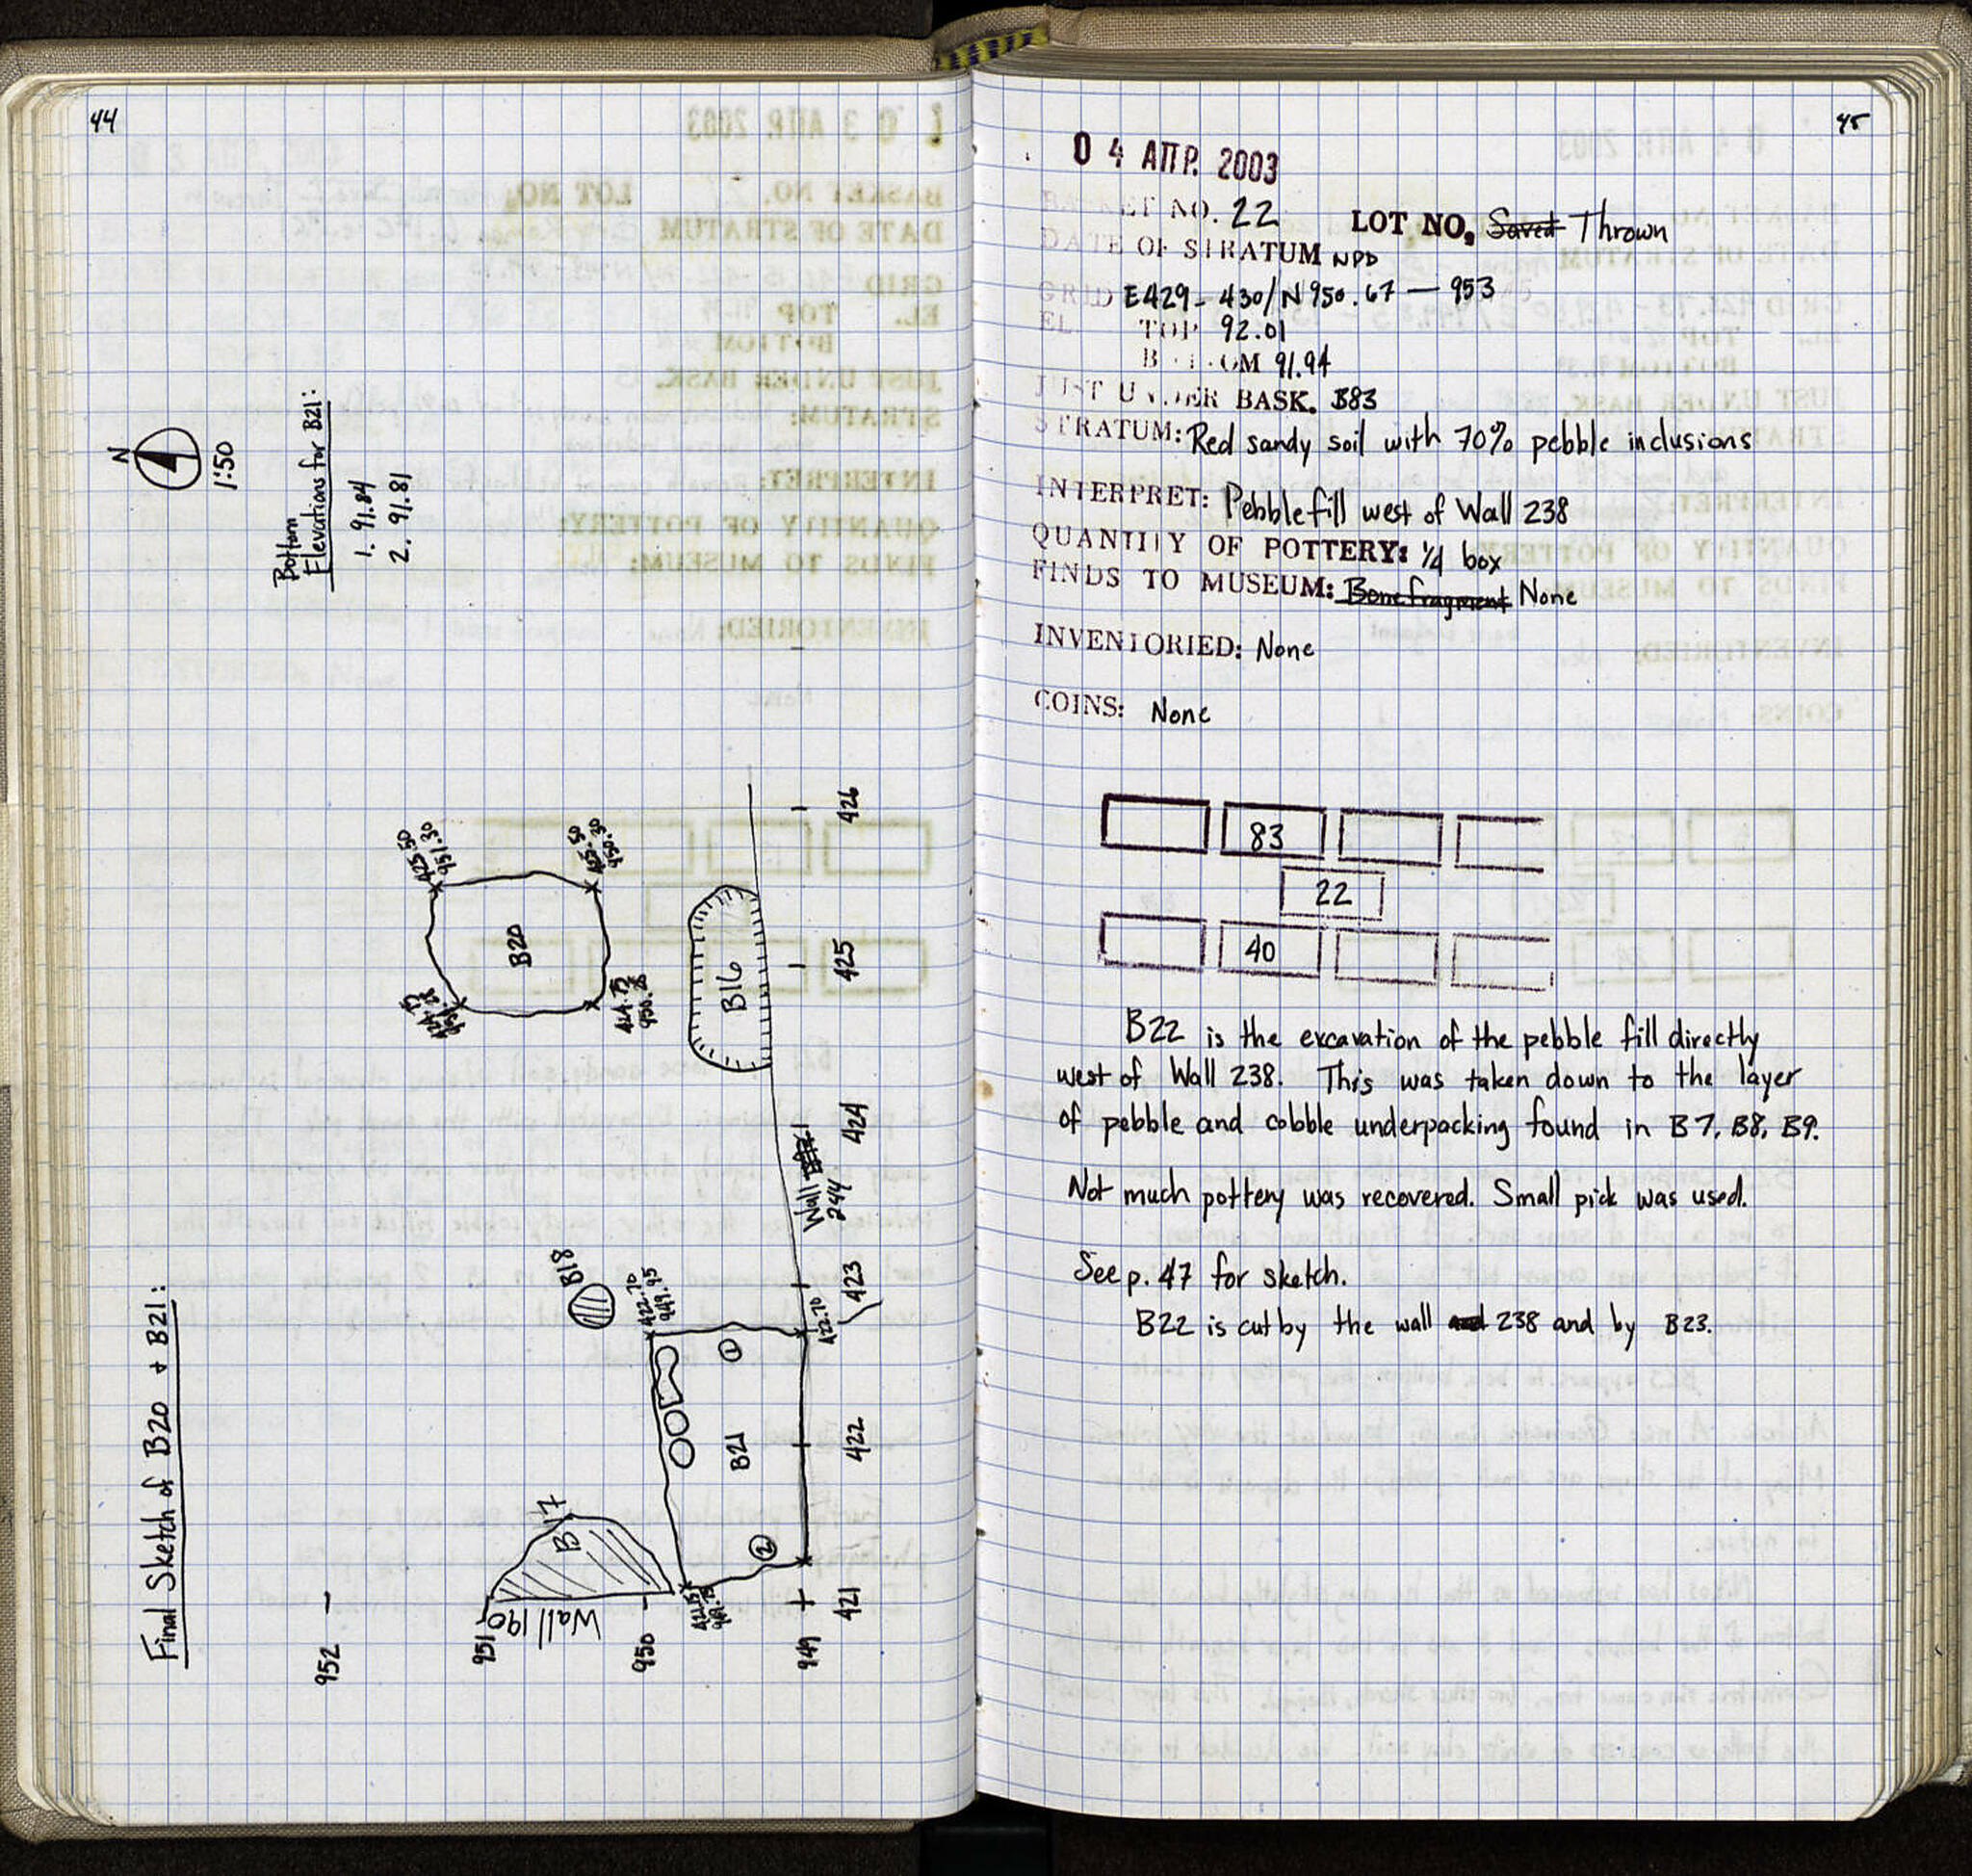 44
N
1:50
Bottom
Elevations for B21:
1. 91.84
2. 91.81
Final Sketch of B20 + B21:
425.50
951.30
425.50
950.30
B20
424.75
424.75
950.25
B16
426
425
424
423
422
421
Wall
244
B18
422.70
949.95
422.70
1
B21
2
B17
Wall 190
952
951
950
949
45
04 ΑΠΡ. 2003
BASKET NO. 22 LOT NO, Saved Thrown
DATE OF STRATUM NPD
GRID E429-430/N950.67 — 953
EL. TOP 92.01
BOTTOM 91.94
JUST UNDER BASK. B83
STRATUM: Red sandy soil with 70% pebble inclusions
INTERPRET: Pebble fill west of Wall 238
QUANTITY OF POTTERY: 1/4 box
FINDS TO MUSEUM: Bone fragment None
INVENTORIED: None
COINS: None
83
22
40
B22 is the excavation of the pebble fill directly
west of Wall 238. This was taken down to the layer
of pebble and cobble underpacking found in B7, B8, B9.
Not much pottery was recovered. Small pick was used.
See p. 47 for sketch.
B22 is cut by the wall and 238 and by B23.